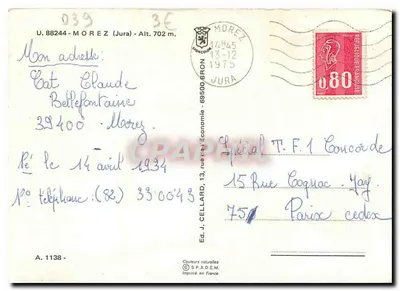 039
3€
U. 88244 - MOREZ (Jura) - Alt. 702 m.
Mon adresse:
Cat Claude
Bellefontaine
39400 - Morez
Né le 14 avril 1934
No téléphone (82) 33 00 43
A. 1138 -
Ed. J. CELLARD, 13, rue de l'Economie - 69500 BRON
MOREZ
14H45
13-12
1975
JURA
0,80
Spécial T.F.1 Concorde
15 Rue Cognac-Jay
75 Paris cedex
Couleurs naturelles
© S.P.A.D.E.M.
Imprimé en France